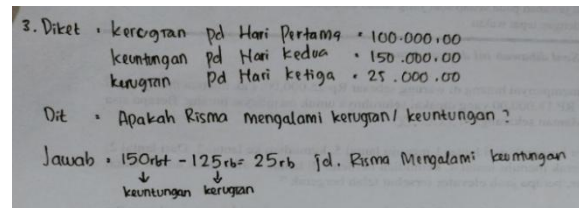 3. Diket : kerogran pd Hari Pertama = 100.000,00
keuntungan pd Hari kedua = 150.000.00
kerugran pd Hari ketiga = 25.000.00
Dit = Apakah Risma mengalami kerugran/ keuntungan ?
Jawab = 150rbt - 125rb = 25rb jd. Risma Mengalami keuntungan
↓ ↓
keuntungan kerugran